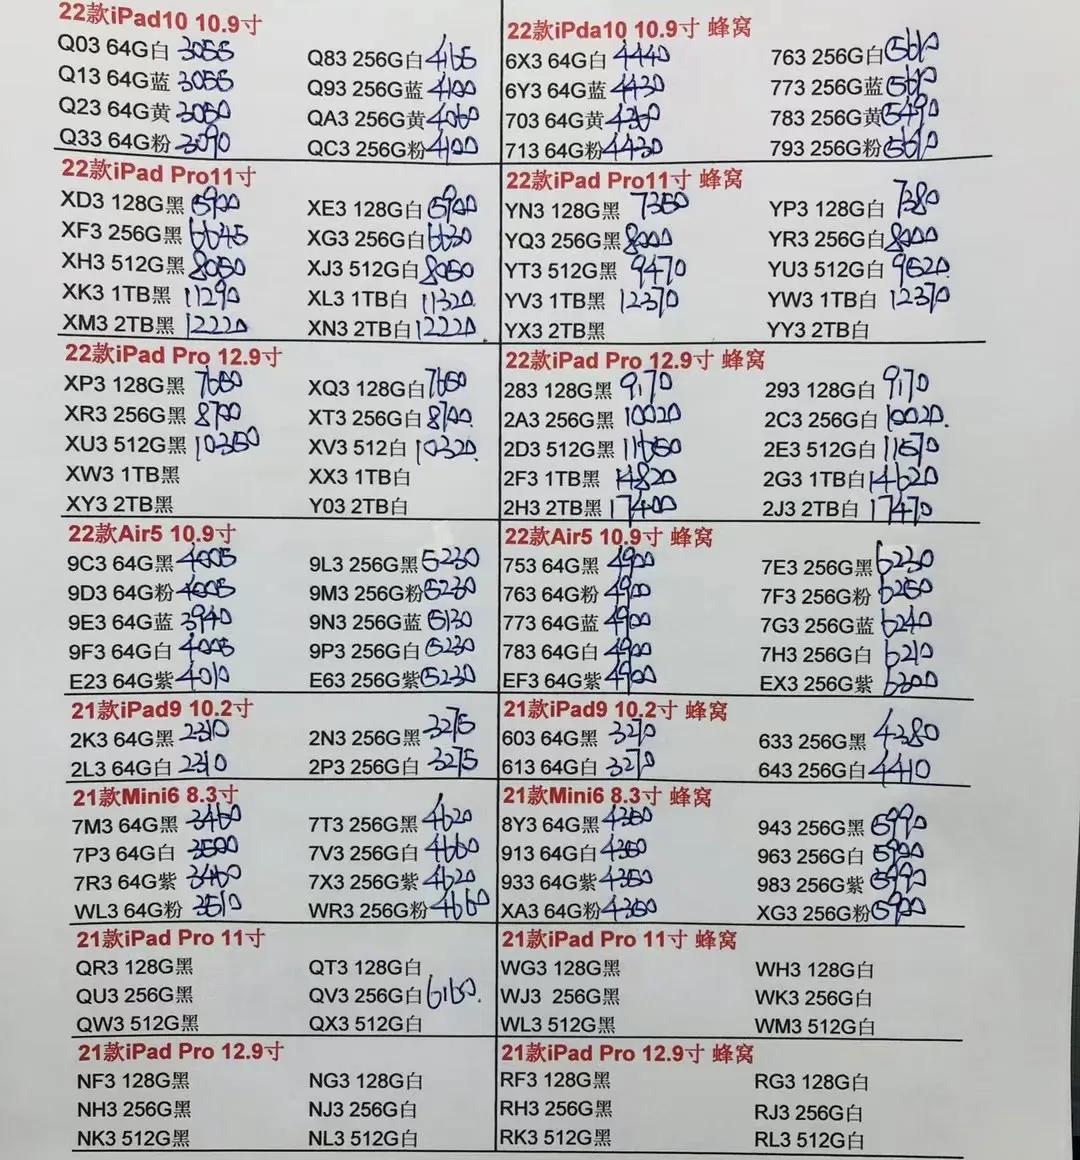 22款iPad10 10.9寸
Q03 64G白 3055 Q83 256G白 4165
Q13 64G蓝 3055 Q93 256G蓝 4100
Q23 64G黄 3050 QA3 256G黄 4060
Q33 64G粉 3090 QC3 256G粉 4100
22款iPda10 10.9寸 蜂窝
6X3 64G白 4440 763 256G白
6Y3 64G蓝 4430 773 256G蓝
703 64G黄 783 256G黄 5490
713 64G粉 4430 793 256G粉
22款iPad Pro11寸
XD3 128G黑 5900 XE3 128G白 5900
XF3 256G黑 6645 XG3 256G白 6630
XH3 512G黑 8050 XJ3 512G白 8050
XK3 1TB黑 11290 XL3 1TB白 11320
XM3 2TB黑 12220 XN3 2TB白 12220
22款iPad Pro11寸 蜂窝
YN3 128G黑 7350 YP3 128G白 7380
YQ3 256G黑 8000 YR3 256G白 8000
YT3 512G黑 9470 YU3 512G白 9520
YV3 1TB黑 12370 YW3 1TB白 12370
YX3 2TB黑 YY3 2TB白
22款iPad Pro 12.9寸
XP3 128G黑 7650 XQ3 128G白 7650
XR3 256G黑 8700 XT3 256G白 8700
XU3 512G黑 10350 XV3 512白 10320
XW3 1TB黑 XX3 1TB白
XY3 2TB黑 Y03 2TB白
22款iPad Pro 12.9寸 蜂窝
283 128G黑 9170 293 128G白 9170
2A3 256G黑 10020 2C3 256G白 10020
2D3 512G黑 11650 2E3 512G白 11570
2F3 1TB黑 14820 2G3 1TB白 14620
2H3 2TB黑 17400 2J3 2TB白 17470
22款Air5 10.9寸
9C3 64G黑 4005 9L3 256G黑 5230
9D3 64G粉 4005 9M3 256G粉 5230
9E3 64G蓝 3940 9N3 256G蓝 5130
9F3 64G白 4005 9P3 256G白 5230
E23 64G紫 4010 E63 256G紫 5230
22款Air5 10.9寸 蜂窝
753 64G黑 4900 7E3 256G黑 6230
763 64G粉 4900 7F3 256G粉 6250
773 64G蓝 4900 7G3 256G蓝 6240
783 64G白 4900 7H3 256G白 6210
EF3 64G紫 4900 EX3 256G紫 6300
21款iPad9 10.2寸
2K3 64G黑 2310 2N3 256G黑 3275
2L3 64G白 2310 2P3 256G白 3275
21款iPad9 10.2寸 蜂窝
603 64G黑 3270 633 256G黑 4380
613 64G白 3270 643 256G白 4410
21款Mini6 8.3寸
7M3 64G黑 3460 7T3 256G黑 4620
7P3 64G白 3500 7V3 256G白 4660
7R3 64G紫 3460 7X3 256G紫 4620
WL3 64G粉 3510 WR3 256G粉 4660
21款Mini6 8.3寸 蜂窝
8Y3 64G黑 4350 943 256G黑 5990
913 64G白 4350 963 256G白 5900
933 64G紫 4350 983 256G紫 5990
XA3 64G粉 4350 XG3 256G粉 5900
21款iPad Pro 11寸
QR3 128G黑 QT3 128G白
QU3 256G黑 QV3 256G白 6160
QW3 512G黑 QX3 512G白
21款iPad Pro 11寸 蜂窝
WG3 128G黑 WH3 128G白
WJ3 256G黑 WK3 256G白
WL3 512G黑 WM3 512G白
21款iPad Pro 12.9寸
NF3 128G黑 NG3 128G白
NH3 256G黑 NJ3 256G白
NK3 512G黑 NL3 512G白
21款iPad Pro 12.9寸 蜂窝
RF3 128G黑 RG3 128G白
RH3 256G黑 RJ3 256G白
RK3 512G黑 RL3 512G白